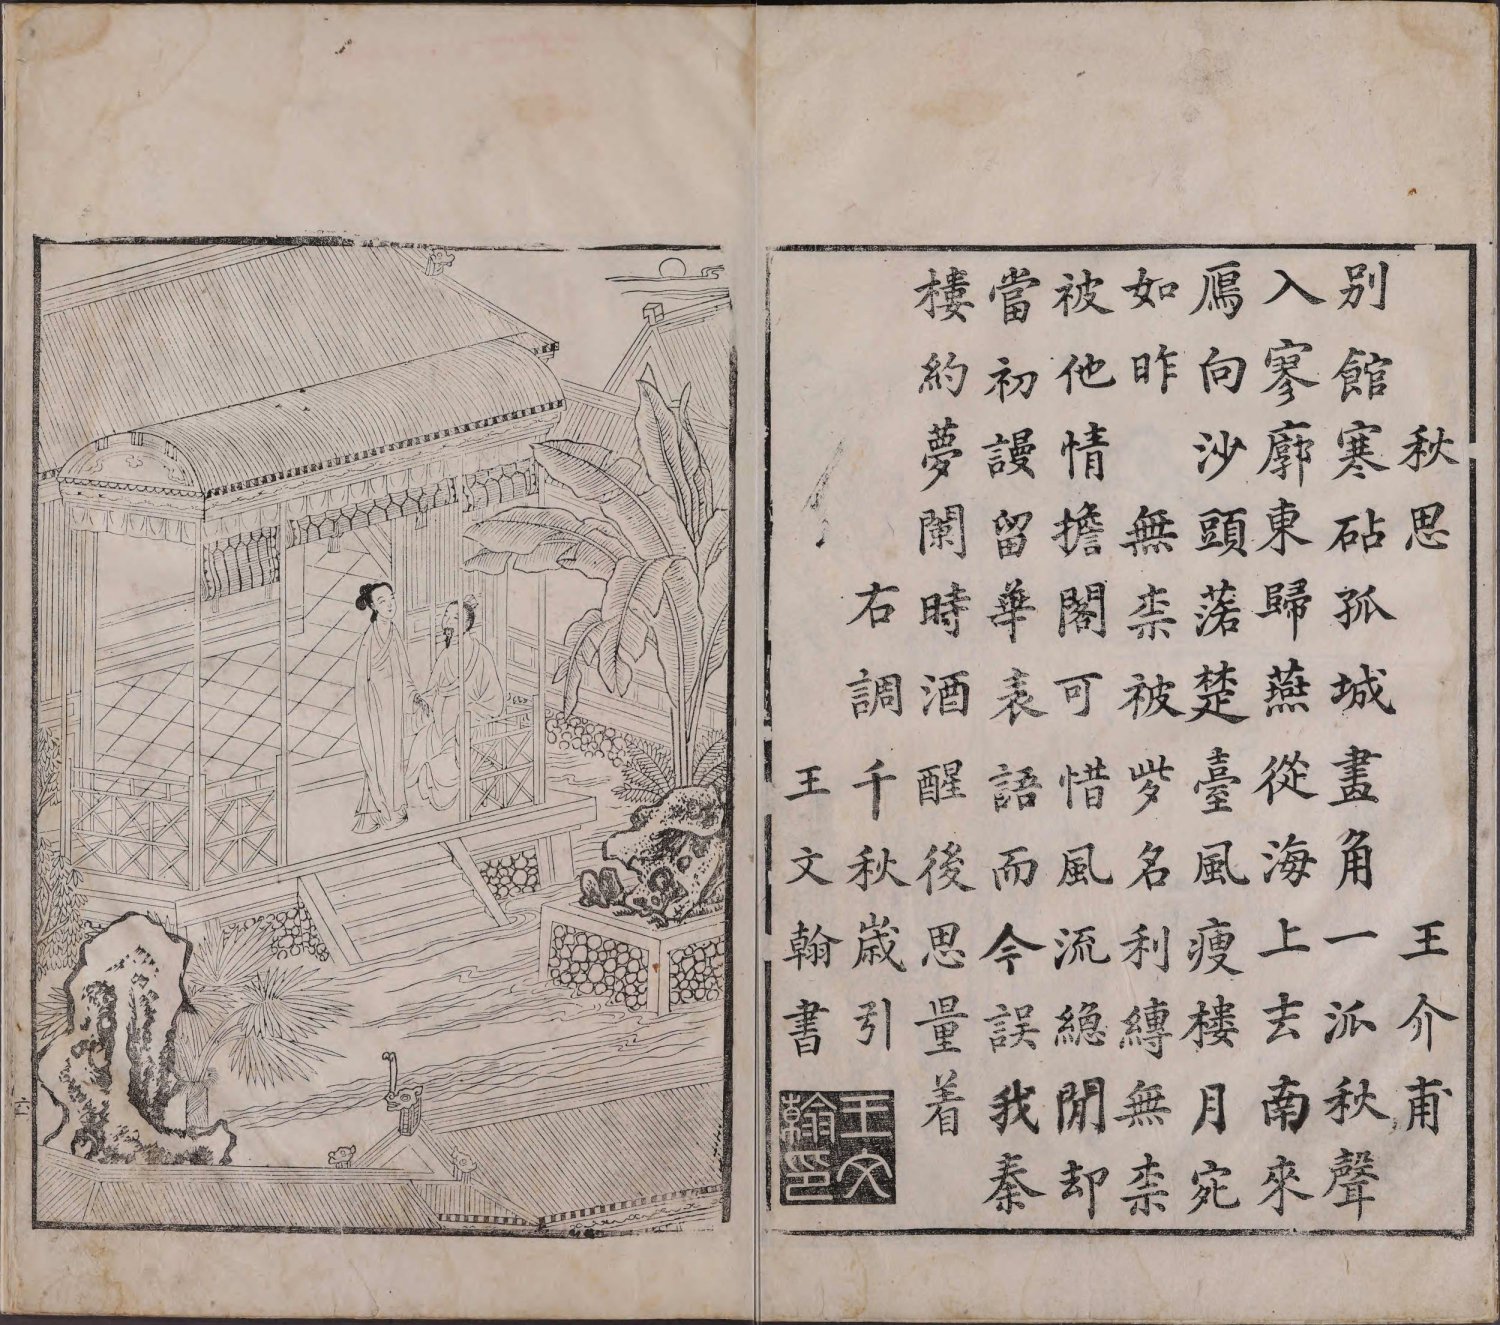 秋思 王介甫
别館寒砧孤城畫角一派秋聲
入寥廓東歸燕從海上去南來
鴈向沙頭落楚臺風瘦樓月宛
如昨 無柰被㱔名利縛無柰
被他情擔閣可惜風流緫閒却
當初謾留華表語而今誤我秦
樓約夢闌時酒醒後思量着
右調千秋歲引
王文翰書
王文翰印